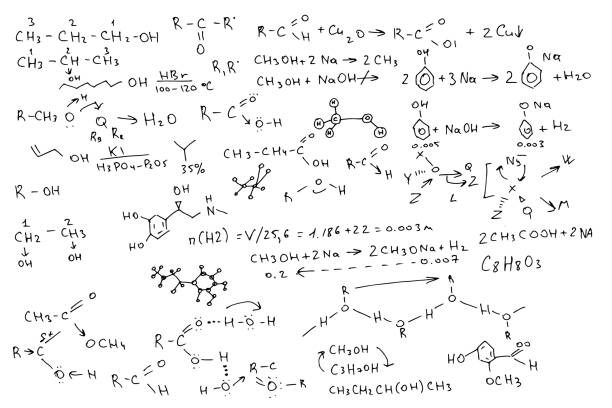 3 2 1
CH₃-CH₂-CH₂-OH
1 2 3
CH₃-CH-CH₃
OH
R-C-R'
O
R, R'
R-C O H + Cu₂O → R-C O O1 + 2Cu↓
CH₃OH + 2Na → 2CH₃
CH₃OH + NaOH ↛
OH
2 + 3Na → 2
O Na
+ H₂O
OH HBr
100-120 °C
R-CH₃ O H Q → H₂O
R₃ R₂
R-C O O-H
H H C H O H
OH
+ NaOH →
O Na
+ H₂
0.005 0.003
OH K1
H₃PO₄-P₂O5
35%
CH₃-CH₄-C O OH
R-C O H
X O Y Z
Q Z L
N5 X Z Q W M
R-OH
R O H
1 2
CH₂-CH₃
OH OH
HO HO OH H N
n(H2) = V/25,6 = 1.186+22 = 0.003м
2CH₃COOH + 2NA
CH₃OH + 2Na → 2CH₃ONa + H₂
0.2 ← 0.007
C₈H₈O₃
CH₃-C O
OCH₄
δ+
R→C O ← H
R-C O O-H
H-O-H
R-C O H
H-O H
R-C O R
R R R R
H O H O H O H O
CH₃OH
C₃H₇OH
CH₃CH₂CH(OH)CH₃
HO O H
OCH3